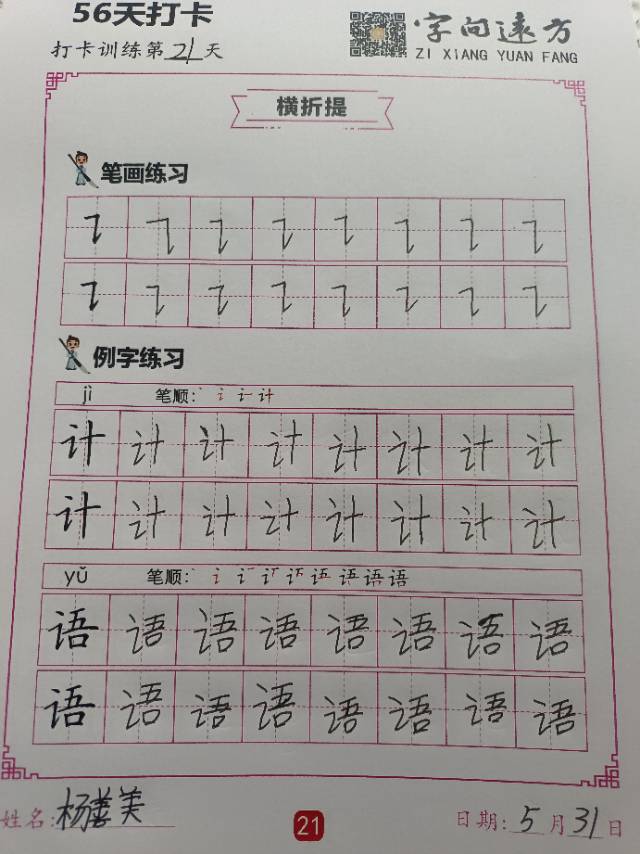 56天打卡
打卡训练第21天
字向远方
ZI XIANG YUAN FANG
横折提
笔画练习
㇊ ㇊ ㇊ ㇊ ㇊ ㇊ ㇊ ㇊
㇊ ㇊ ㇊ ㇊ ㇊ ㇊ ㇊ ㇊
例字练习
jì 笔顺: 计
计 计 计 计 计 计 计 计
计 计 计 计 计 计 计 计
yǔ 笔顺: 语
语 语 语 语 语 语 语 语
语 语 语 语 语 语 语 语
姓名: 杨美
21
日期: 5月31日